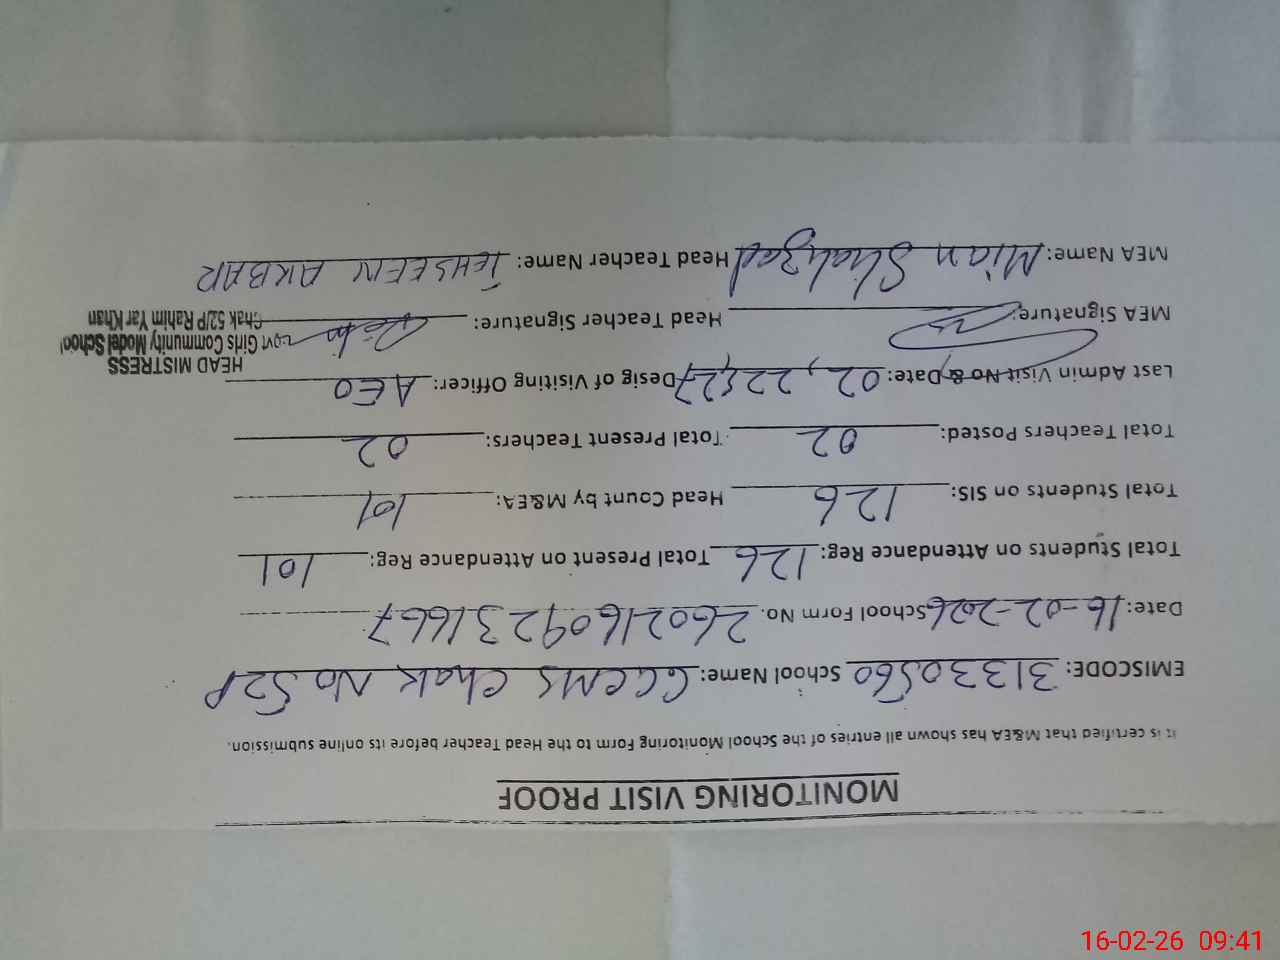 MONITORING VISIT PROOF
it is certified that M&EA has shown all entries of the School Monitoring Form to the Head Teacher before its online submission.
EMISCODE: 31330560 School Name: GGCMS Chak No 52P
Date: 16-02-2026 School Form No. 260216092316667
Total Students on Attendance Reg: 126 Total Present on Attendance Reg: 101
Total Students on SIS: 126 Head Count by M&EA: 101
Total Teachers Posted: 02 Total Present Teachers: 02
Last Admin Visit No & Date: 02, 22,27 Desig of Visiting Officer: AEO
HEAD MISTRESS
Govt Girls Community Model School
Chak 52/P Rahim Yar Khan
MEA Signature: Head Teacher Signature:
MEA Name: Mian Shahzad Head Teacher Name: TEHSEEN AKBAR
16-02-26 09:41